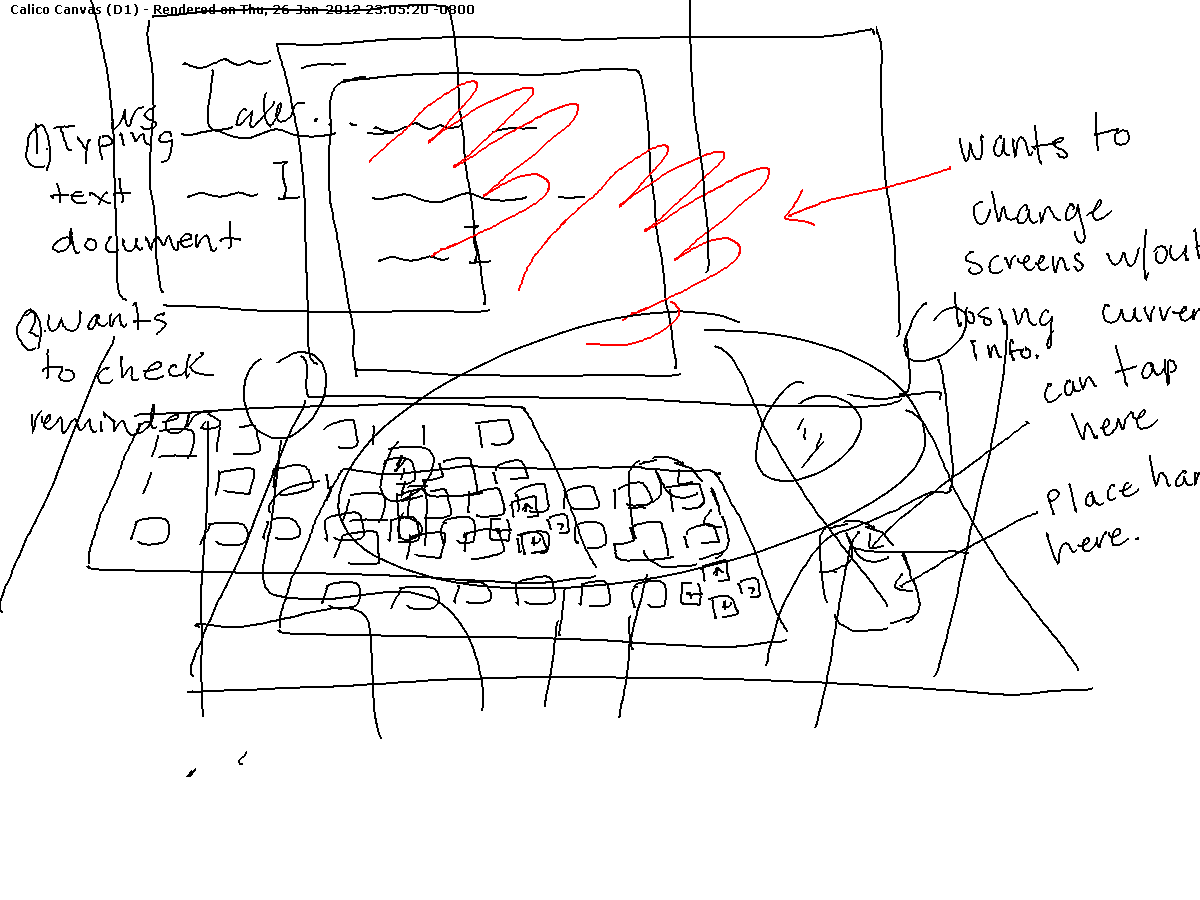 Calico Canvas (D1) - Rendered on Thu, 26 Jan 2012 23:05:20 -0800
urs Later...
① Typing
text
document
② Wants
to check
reminder
wants to
change
screens w/out
losing curren
info.
can tap
here
Place han
here.